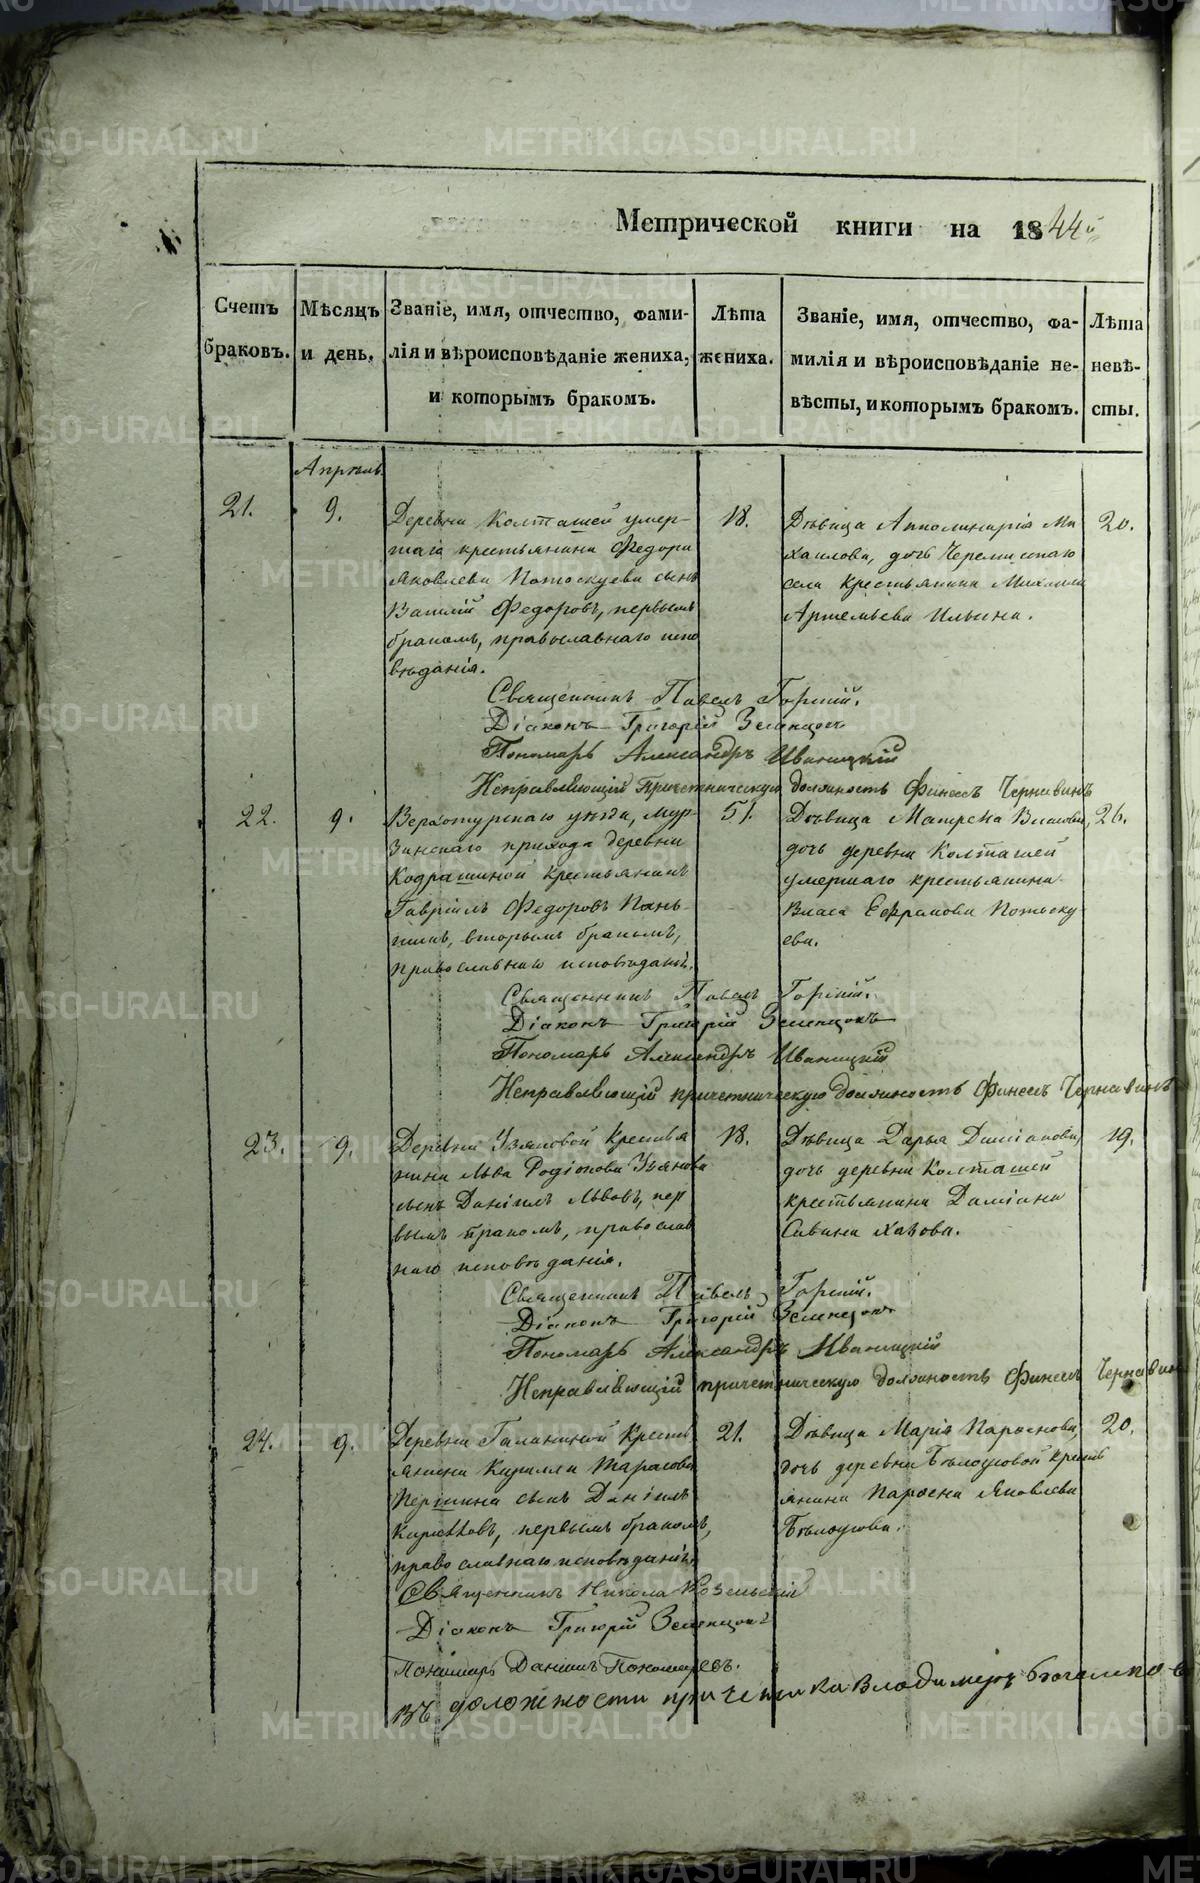 Метрической книги на 1844й
Счетъ браковъ.
Мѣсяцъ и день.
Званіе, имя, отчество, фами-
лія и вѣроисповѣданіе жениха,
и которымъ бракомъ.
Лѣта
жениха.
Званіе, имя, отчество, фа-
милія и вѣроисповѣданіе не-
вѣсты, и которымъ бракомъ.
Лѣта
невѣ-
сты.
Апрѣль
21.
9.
Деревни Колташей умер-
шаго крестьянина Федора
Яковлева Потоскуева сынъ
Василій Федоровъ, первымъ
бракомъ, православнаго испо
вѣданія.
18.
Дѣвица Апполинарія Ми
хаилова, дочь Черемисскаго
села крестьянина Михаила
Артемьева Ильина.
20.
Священникъ Павелъ Горный.
Діаконъ Григорій Зеленцовъ
Пономарь Александръ Иваницкій
Исправляющій причетническую должность Финеесъ Чернавинъ
22.
9.
Верхотурскаго уѣзда, Мур-
зинскаго прихода деревни
Кодрашиной крестьянинъ
Гавріилъ Федоровъ Пань-
шинъ, вторымъ бракомъ,
православнаго исповѣданія.
51.
Дѣвица Матрена Власова,
дочь деревни Колташей
умершаго крестьянина
Власа Ефрамова Потоску
ева.
26.
Священникъ Павелъ Горный.
Діаконъ Григорій Зеленцовъ
Пономарь Александръ Иваницкій
Исправляющій причетническую должность Финеесъ Чернавинъ
23.
9.
Деревни Узяновой крестья
нина Льва Родіонова Узянова
сынъ Даніилъ Львовъ, пер
вымъ бракомъ, православ
наго исповѣданія.
18.
Дѣвица Дарья Даміанова,
дочь деревни Колташей
крестьянина Даміана
Савина Хахова.
19.
Священникъ Павелъ Горный.
Діаконъ Григорій Зеленцовъ
Пономарь Александръ Иваницкій
Исправляющій причетническую должность Финеесъ Чернавинъ
24.
9.
Деревни Галаниной кресть
янина Кирилла Тарасова
Першина сынъ Даніилъ
Кириловъ, первымъ бракомъ,
православнаго исповѣданія.
21.
Дѣвица Марія Парѳенова,
дочь деревни Бѣлоусовой кресть
янина Парѳена Яковлева
Бѣлоусова.
20.
Священникъ Никола Козельскій
Діаконъ Григорій Зеленцовъ
Пономарь Даніилъ Пономаревъ.
въ должности причетника Владимеръ
METRIKI.GASO-URAL.RU